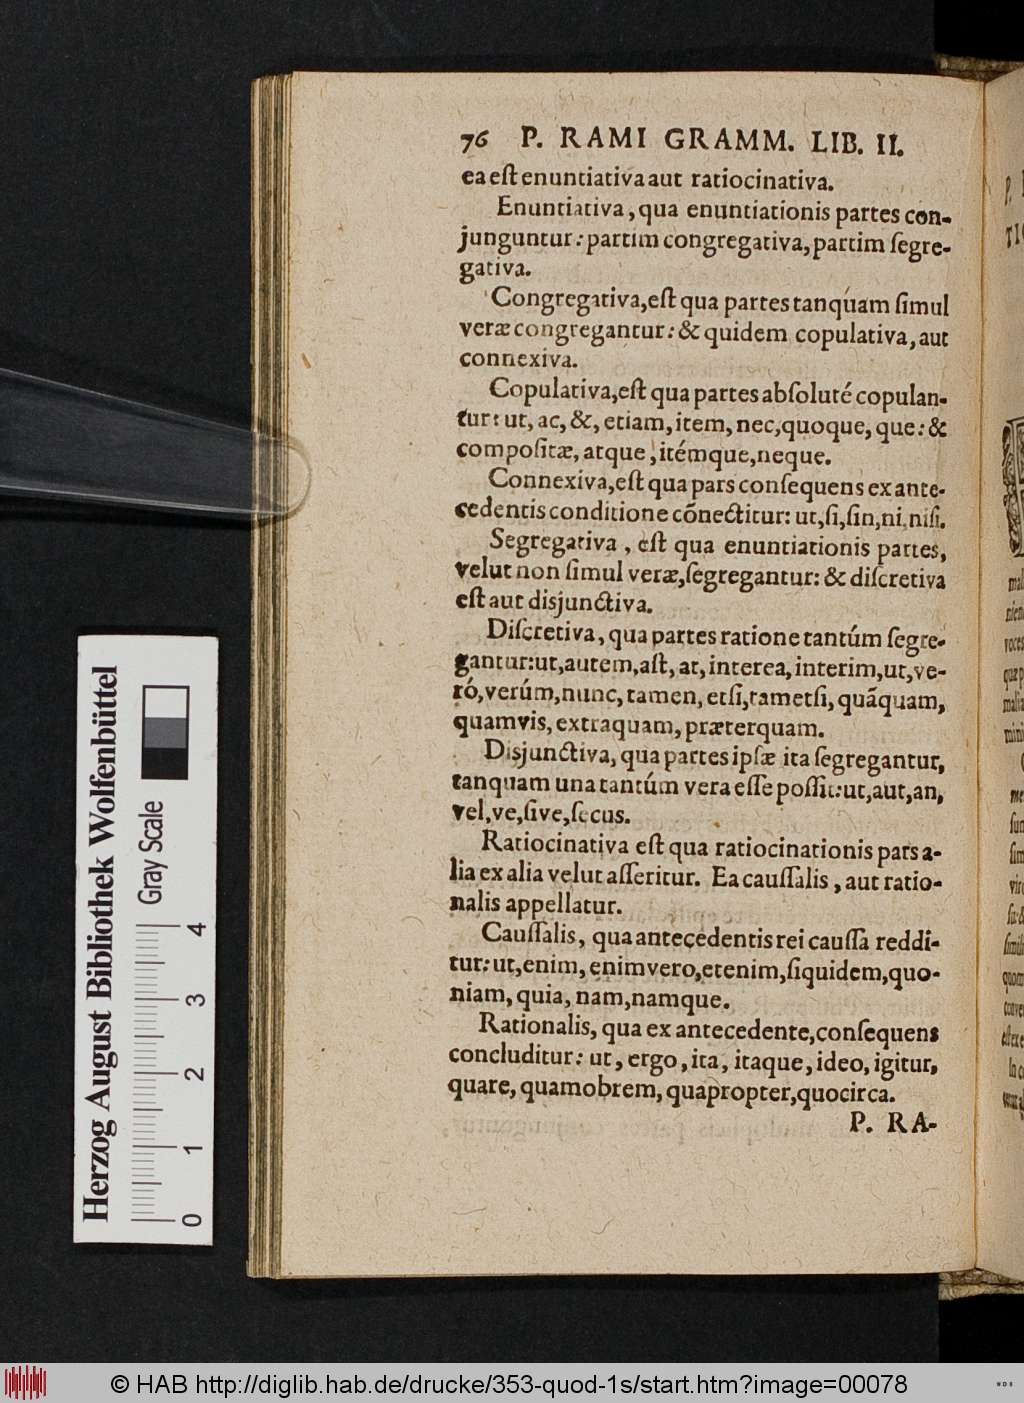 76 P. RAMI GRAMM. LIB. II.
ea eſt enuntiativa aut ratiocinativa.
Enuntiativa, qua enuntiationis partes con-
junguntur: partim congregativa, partim ſegre-
gativa.
Congregativa, eſt qua partes tanquam ſimul
veræ congregantur: & quidem copulativa, aut
connexiva.
Copulativa, eſt qua partes abſoluté copulan-
tur: ut, ac, &, etiam, item, nec, quoque, que: &
compoſitæ, atque, itémque, neque.
Connexiva, eſt qua pars conſequens ex ante-
cedentis conditione cõnectitur: ut, ſi, ſin, ni, niſi.
Segregativa, eſt qua enuntiationis partes,
velut non ſimul veræ, ſegregantur: & diſcretiva
eſt aut disjunctiva.
Diſcretiva, qua partes ratione tantúm ſegre-
gantur: ut, autem, aſt, at, interea, interim, ut, ve-
ró, verúm, nunc, tamen, etſi, tametſi, quãquam,
quamvis, extraquam, præterquam.
Disjunctiva, qua partes ipſæ ita ſegregantur,
tanquam una tantúm vera eſſe poſſit: ut, aut, an,
vel, ve, ſive, ſecus.
Ratiocinativa eſt qua ratiocinationis pars a-
lia ex alia velut aſſeritur. Ea cauſſalis, aut ratio-
nalis appellatur.
Cauſſalis, qua antecedentis rei cauſſa reddi-
tur: ut, enim, enimvero, etenim, ſiquidem, quo-
niam, quia, nam, namque.
Rationalis, qua ex antecedente, conſequens
concluditur: ut, ergo, ita, itaque, ideo, igitur,
quare, quamobrem, quapropter, quocirca.
P. RA-
Herzog August Bibliothek Wolfenbüttel
Gray Scale
0 1 2 3 4
© HAB http://diglib.hab.de/drucke/353-quod-1s/start.htm?image=00078